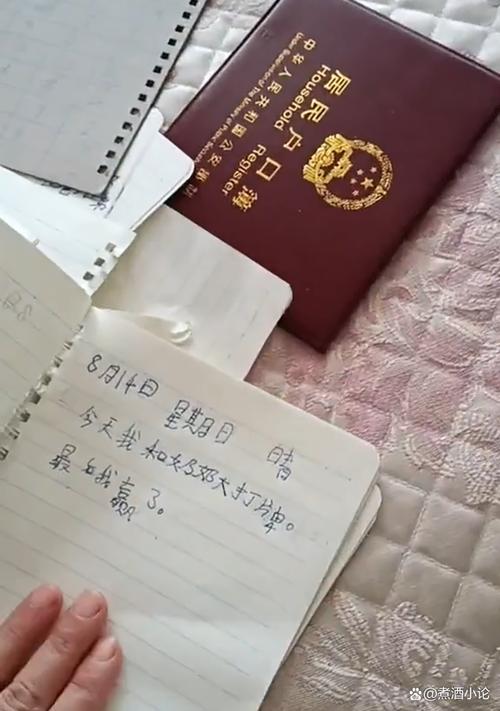 居民户口簿
Household Register
中华人民共和国公安部制
Under Supervision of The Ministry of Public Security
8月14日 星期日 晴
今天我和奶奶大打牌。
最后我赢了。
@煮酒小论